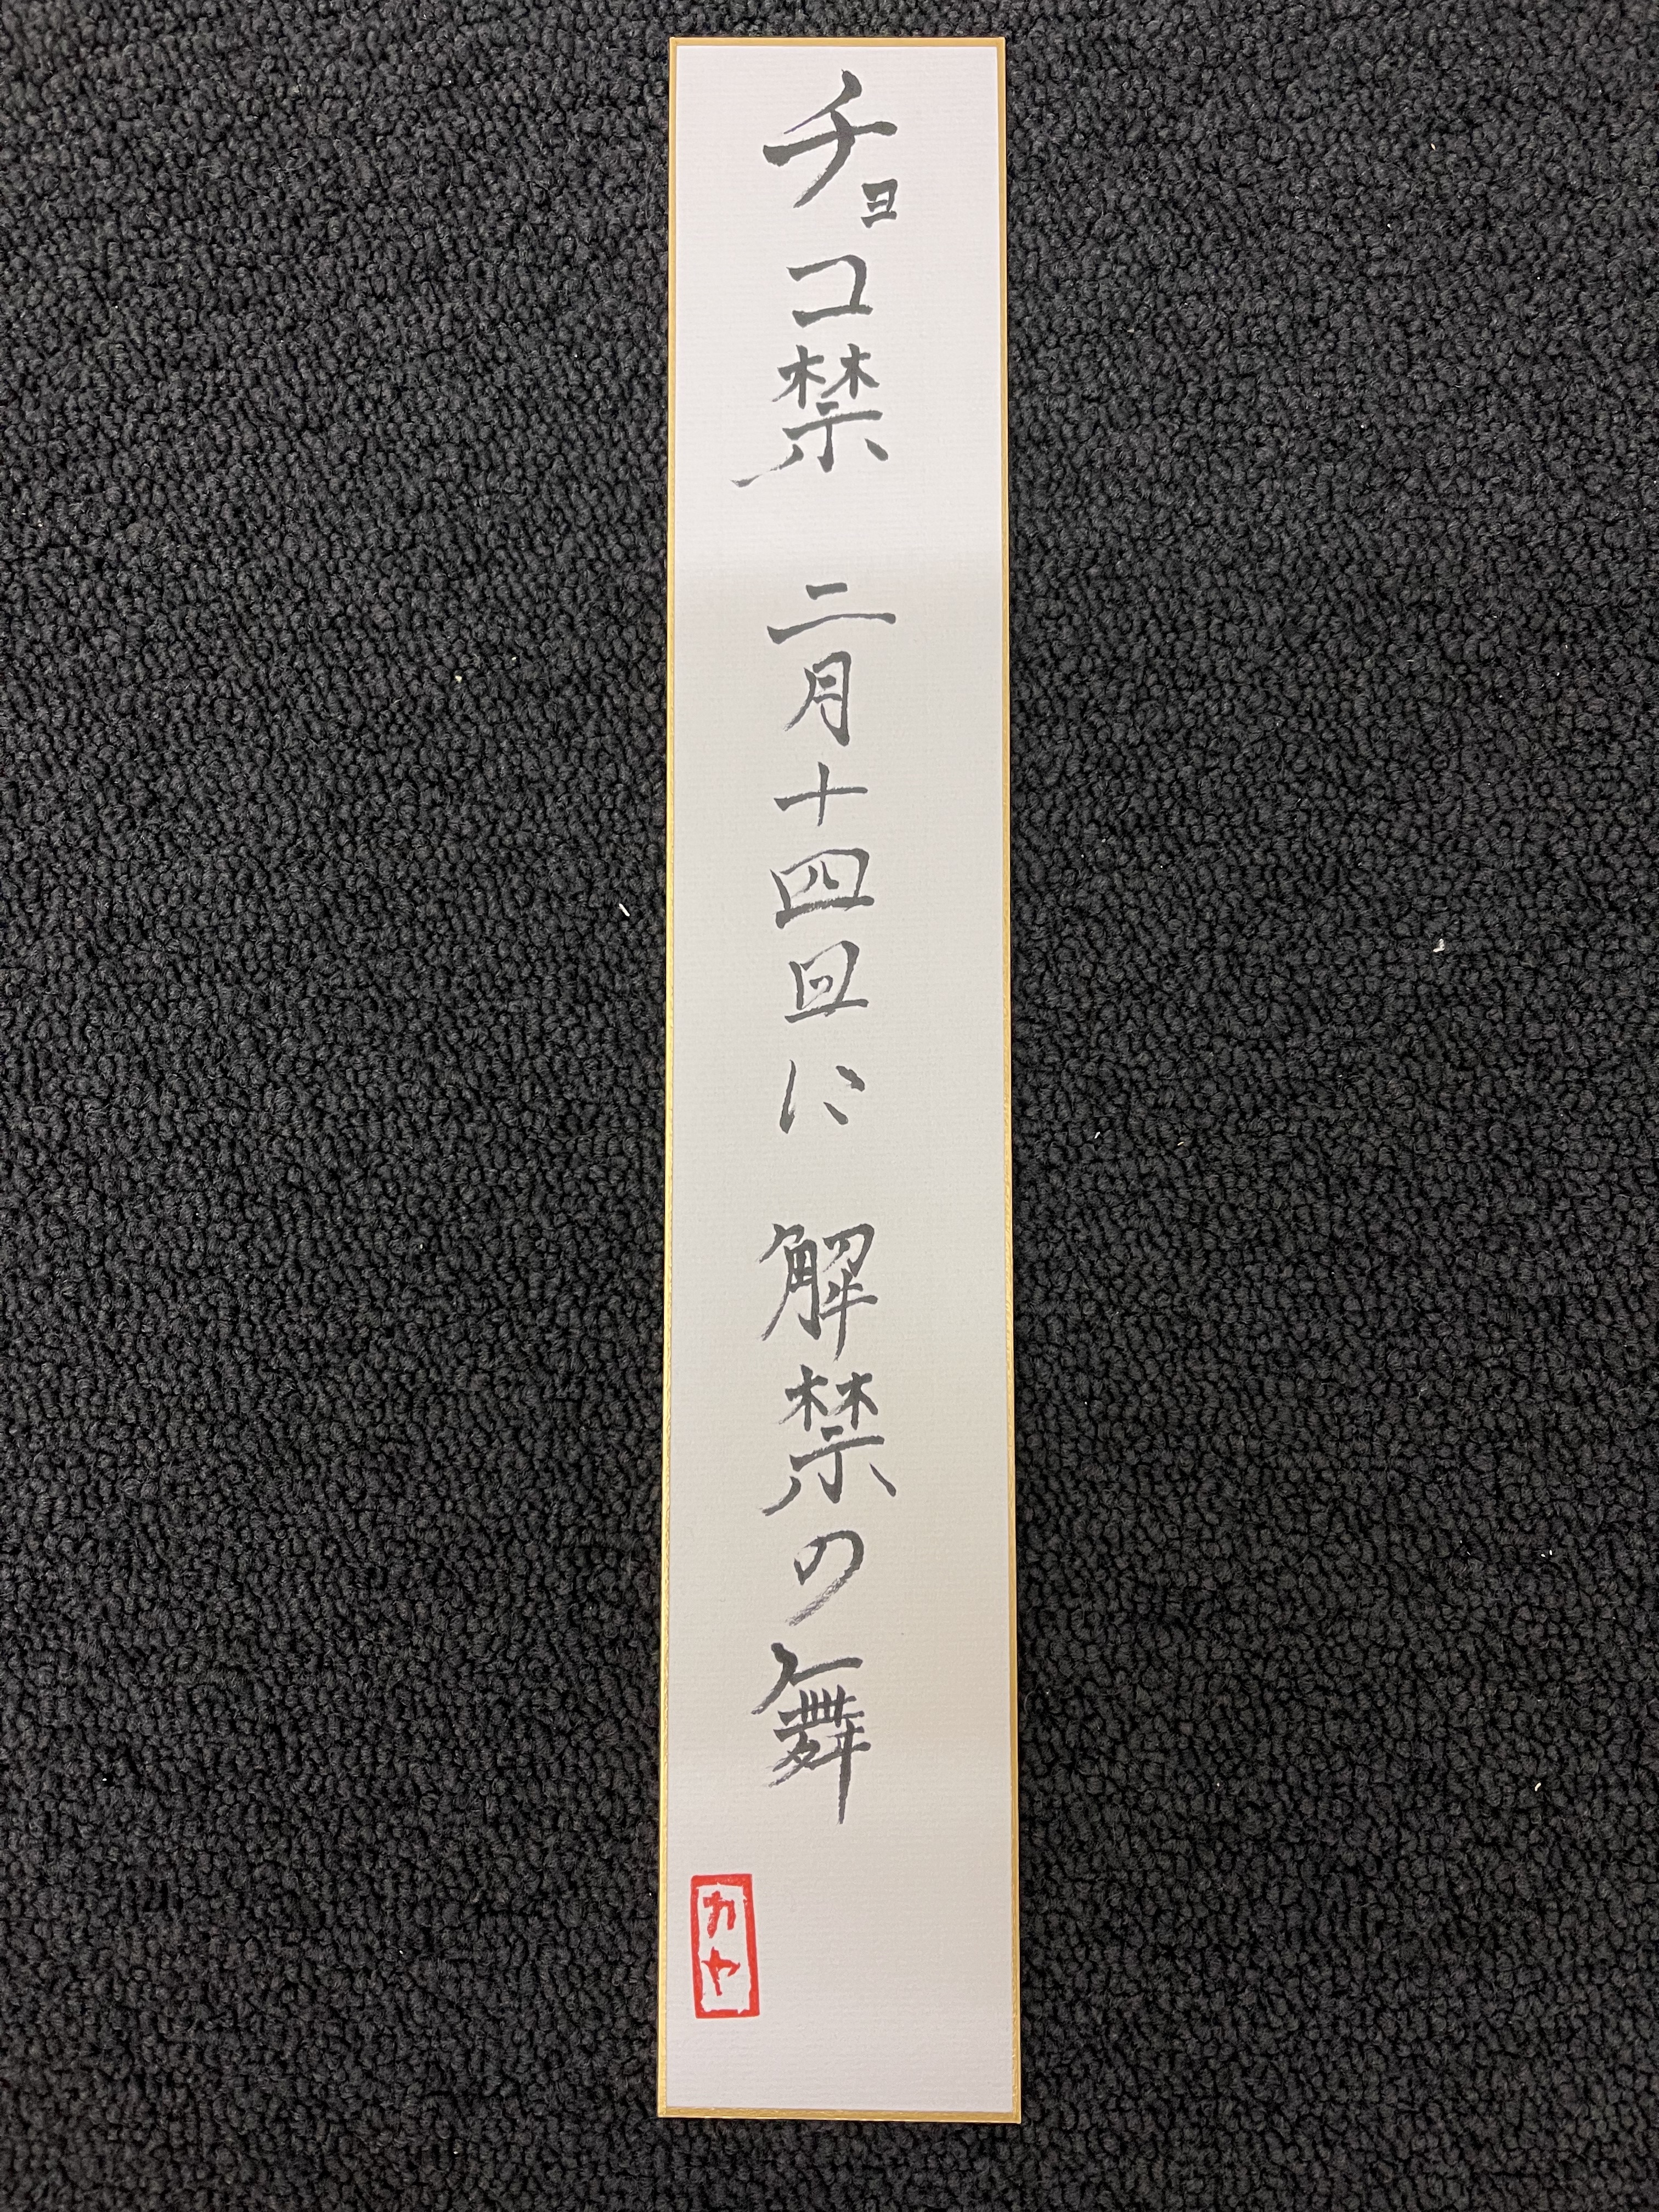 チョコ禁 二月十四日に 解禁の舞
カヤ